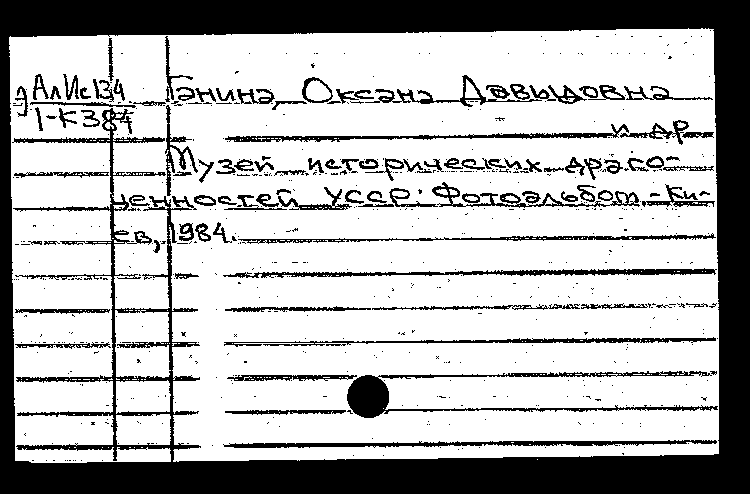 э АлИс134 Ганина, Оксана Давыдовна
1-К384
и др
Музей исторических драго-
ценностей УССР: Фотоальбом.-Ки-
ев, 1984.